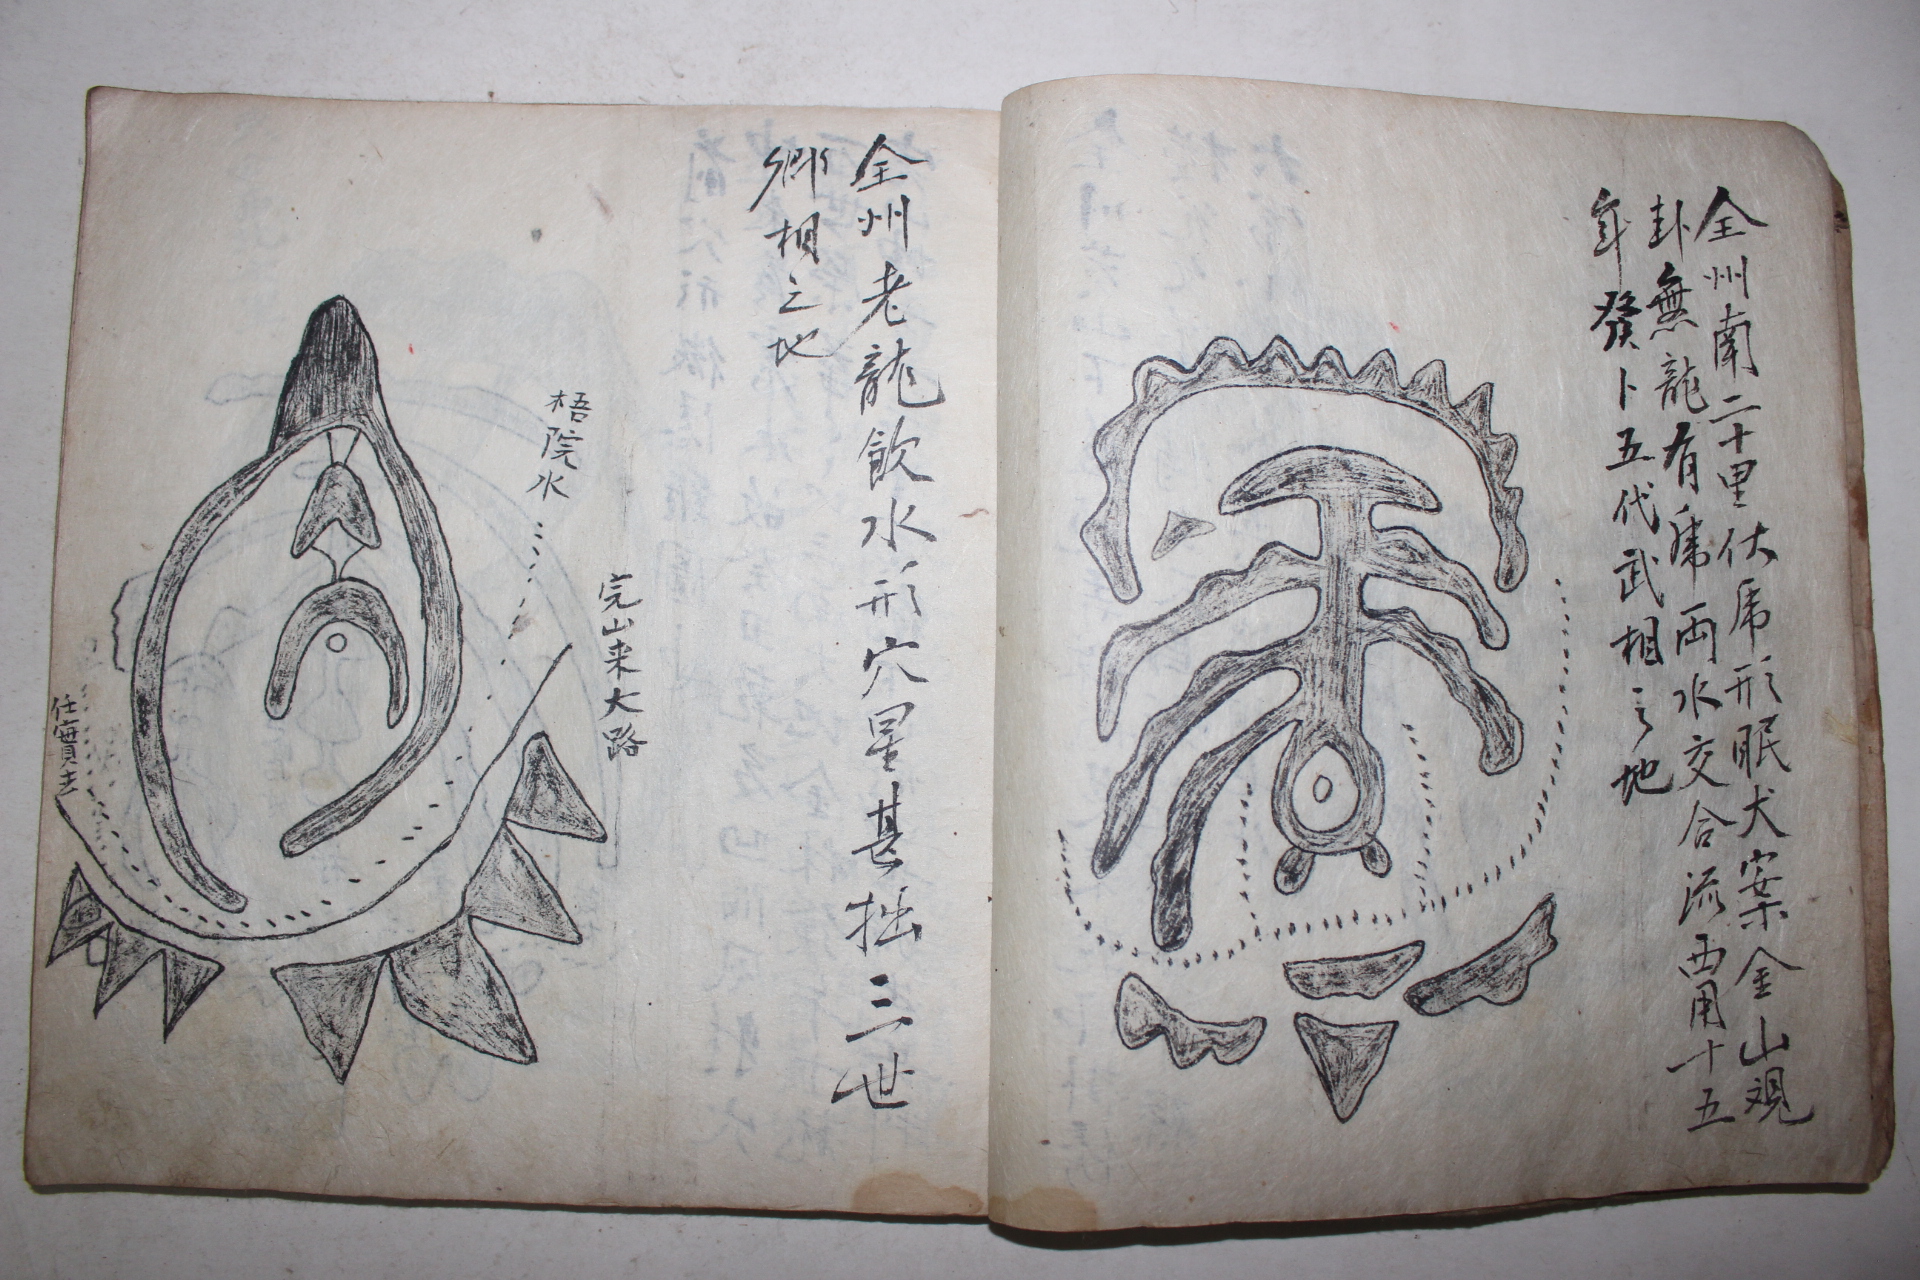 全州南二十里伏虎形眠犬案金山観
卦無龍有虎両水交合流酉用十五
年發卜五代武相之地
全州老龍飮水形穴星甚拙三世
卿相之地
梧院水
完山来大路
任實去